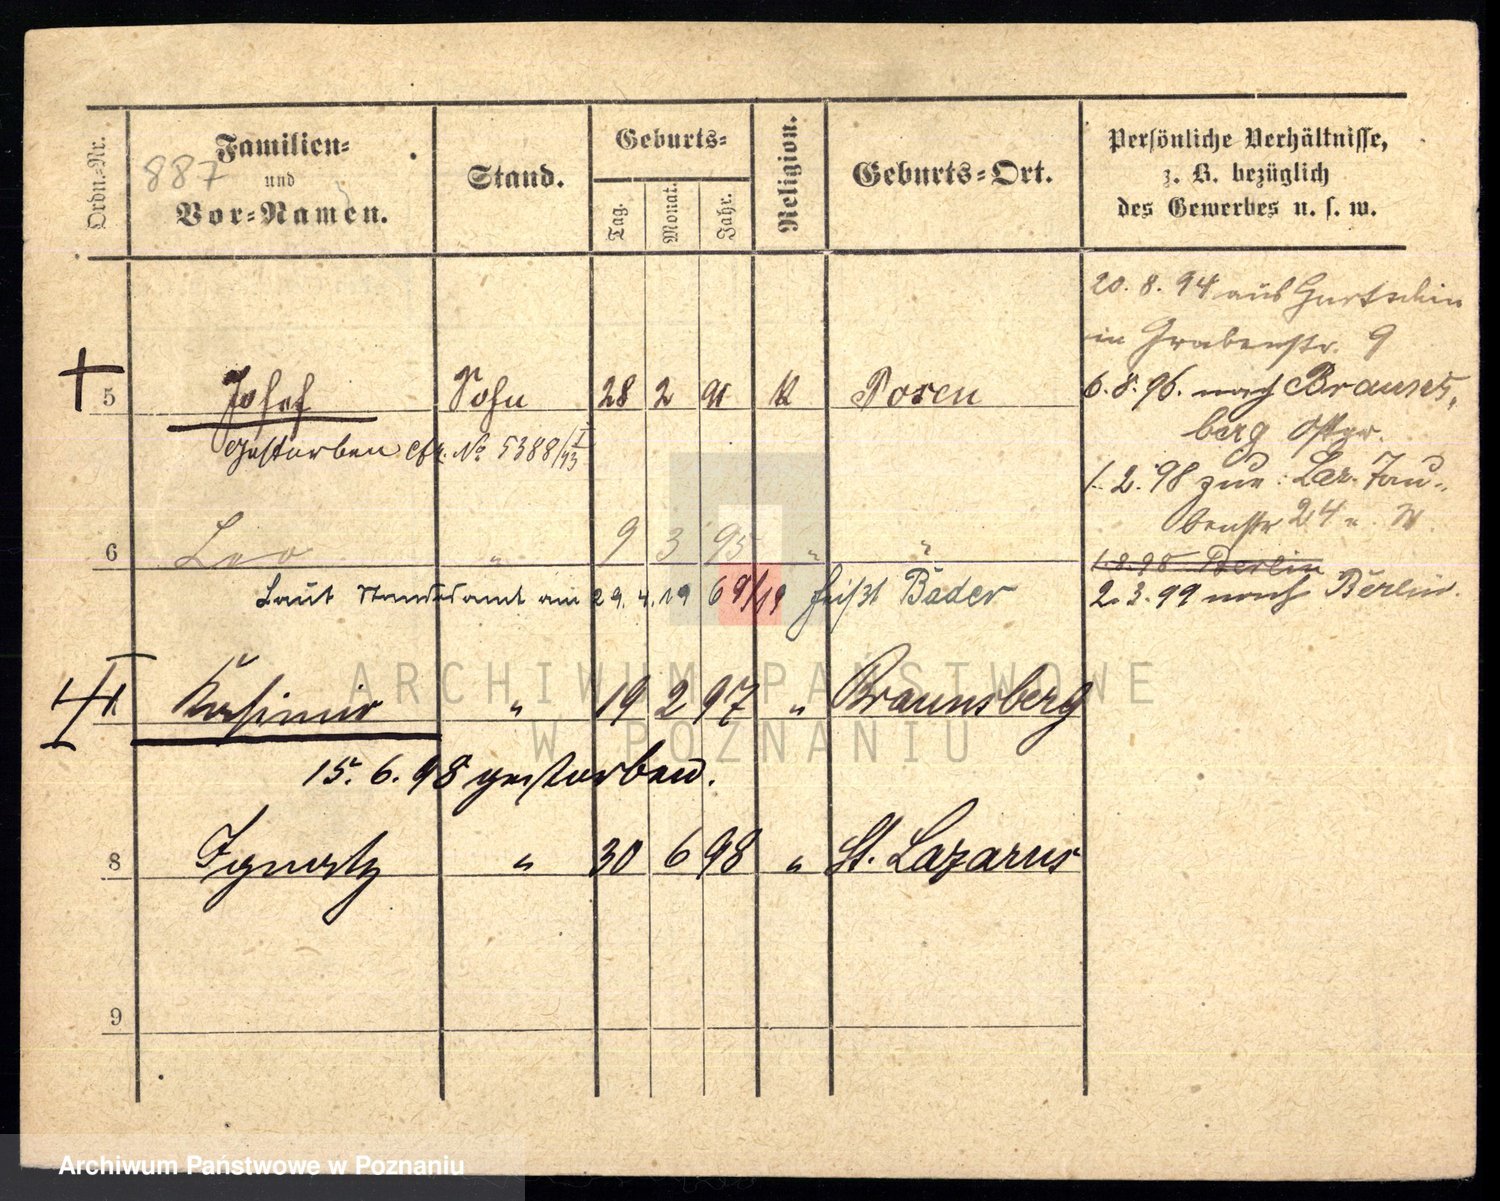 Ordn.-Nr.
Familien-
und
Vor-Namen.
887
Stand.
Geburts-
Tag.
Monat.
Jahr.
Religion.
Geburts-Ort.
Persönliche Verhältnisse,
z. B. bezüglich
des Gewerbes u. s. w.
20. 8. 94 aus Gurtschin
in Grabenstr. 9
5 Josef Sohn 28 2 91 k Posen
6. 8. 96. nach Brauns-
berg Ostpr.
gestorben cfr. No 5388/I/93
1. 2. 98 zur: Laz. Tau-
benstr 24 u. W.
6 Leo " 9 3 95 " "
1. 8. 98 Berlin
2. 3. 99 nach Berlin.
Laut Standesamt am 29. 4. 19 69/19 heißt Bader
7 Kasimir " 19 2 97 " Braunsberg
15. 6. 98 gestorben.
8 Ignatz " 30 6 98 " St. Lazarus
9
ARCHIWUM PAŃSTWOWE
W POZNANIU
Archiwum Państwowe w Poznaniu